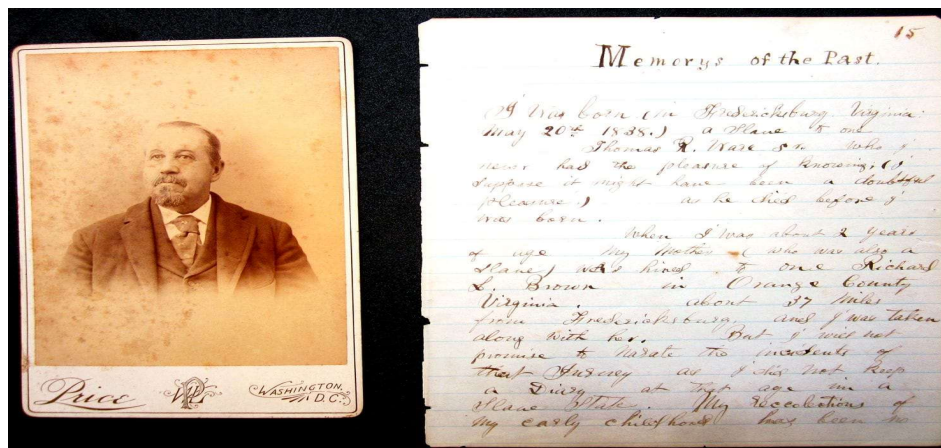 Price
WASHINGTON,
D.C.
15
Memorys of the Past.
I was born (in Fredericksburg Virginia
May 20th 1838.) a Slave to one
Thomas R. Ware Sr. Who I
never had the pleasure of knowing. (I
suppose it might have been a doubtful
pleasure.) as he died before I
was born.
When I was about 2 years
of age My Mother (who was also a
Slave) was hired to one Richard
L. Brown in Orange County
Virginia. about 37 Miles
from Fredericksburg. and I was taken
along with her. But I will not
promise to Narate the incidents of
that Jurney as I did not keep
a Diary at that age in a
Slave State. My Recolections of
my early childhood has been no